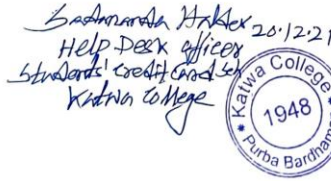 Sadananda Halder 20.12.21
Help Desk officer
Students' Credit Card Sell
Katwa College
Katwa College
1948
Purba Bardhaman